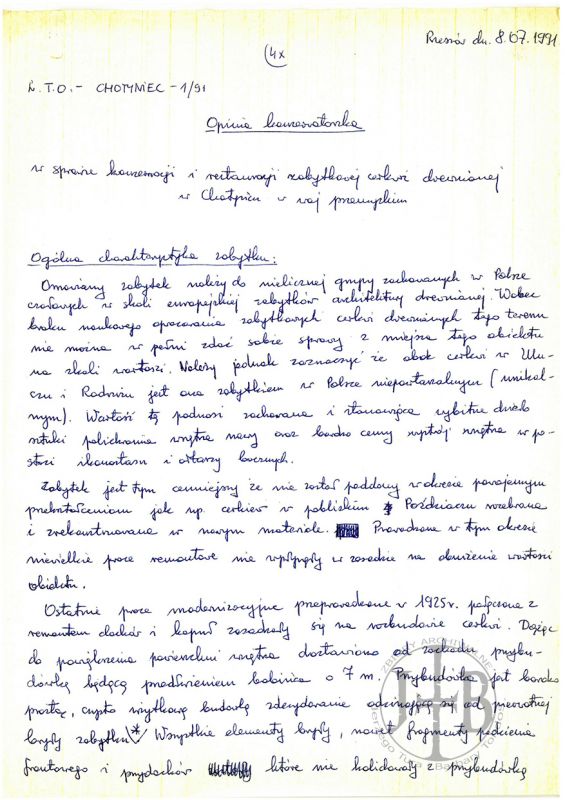 Rzeszów dn. 8.07.1991
4x
R.T.O.- CHOTYNIEC - 1/91
Opinia konserwatorska
w sprawie konserwacji i restauracji zabytkowej cerkwi drewnianej
w Chotyńcu w woj przemyskim
Ogólna charakterystyka zabytku:
Omawiany zabytek należy do nielicznej grupy zachowanych w Polsce
czołowych w skali europejskiej zabytków architektury drewnianej. Wobec
braku naukowego opracowania zabytkowych cerkwi drewnianych tego terenu
nie można w pełni zdać sobie sprawy z miejsca tego obiektu
na skali wartości. Należy jednak zaznaczyć że obok cerkwi w Ulu-
czu i Radrużu jest ona zabytkiem w Polsce niepowtarzalnym (unikal-
nym). Wartość tę podnosi zachowana i stanowiąca wybitne dzieło
sztuki polichromia wnętrza nawy oraz bardzo cenny wystrój wnętrza w po-
staci ikonostasu i ołtarzy bocznych.
Zabytek jest tym cenniejszy że nie został poddany w okresie powojennym
przekształceniom jak np. cerkiew w pobliskim Poździaczu rozebrana
i zrekonstruowana w nowym materiale. Prowadzone w tym okresie
niewielkie prace remontowe nie wpłynęły w zasadzie na obniżenie wartości
obiektu.
Ostatnie prace modernizacyjne przeprowadzone w 1925 r. połączone z
remontem dachów i kopuł zasadzały się na rozbudowie cerkwi. Dążąc
do powiększenia powierzchni wnętrza dostawiono od zachodu przybu-
dówkę będącą przedłużeniem babińca o 7 m. Przybudówka jest bardzo
prostą, czysto użytkową budowlą zdecydowanie odcinającą się od pierwotnej
bryły zabytku.* Wszystkie elementy bryły, nawet fragmenty podcienia
frontowego i przydachów które nie kolidowały z przybudówką
ZBIORY ARCHIWALNE
JTB
Jerzego Tura i Barbary Tondos